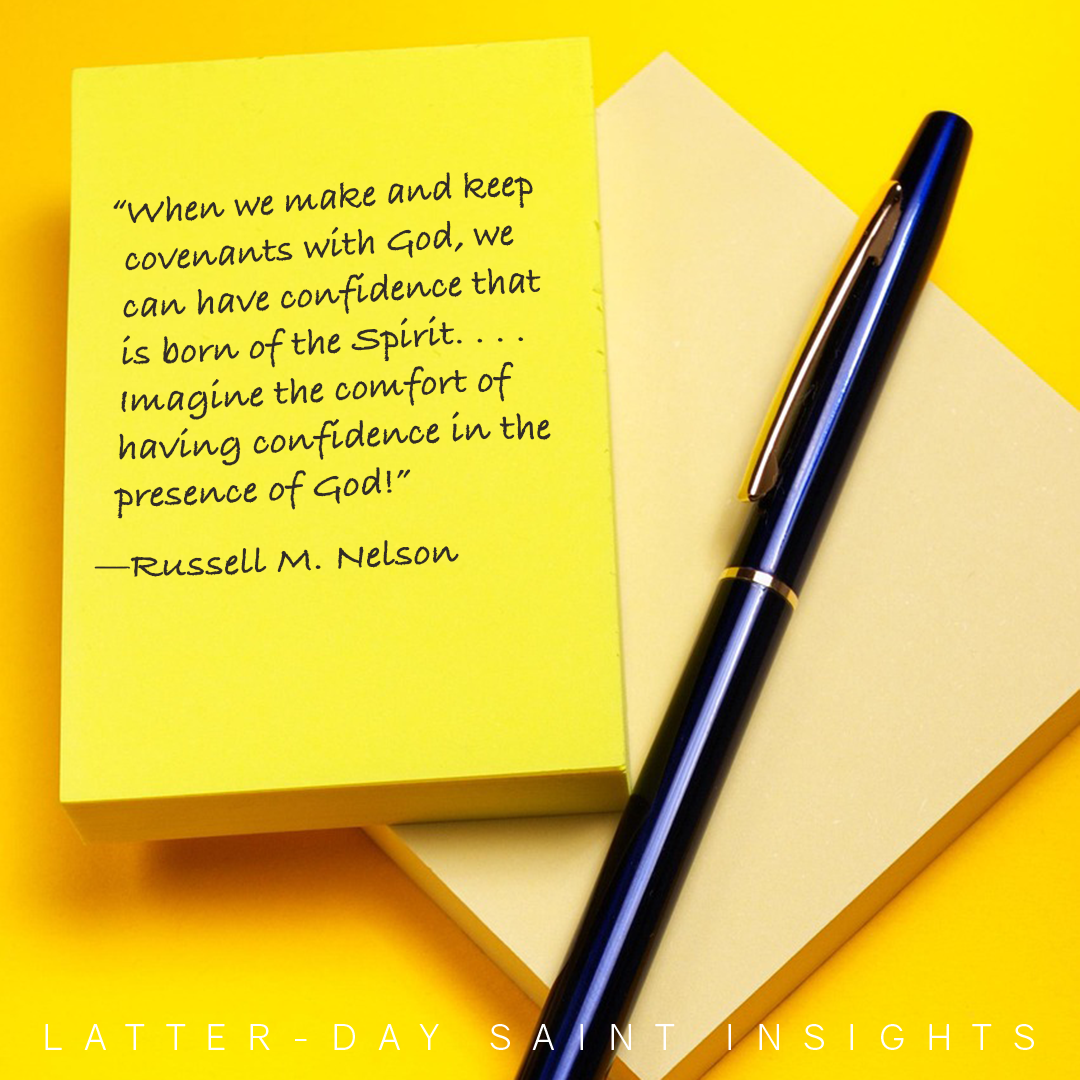 “When we make and keep
covenants with God, we
can have confidence that
is born of the Spirit. . . .
Imagine the comfort of
having confidence in the
presence of God!”
—Russell M. Nelson
LATTER-DAY SAINT INSIGHTS